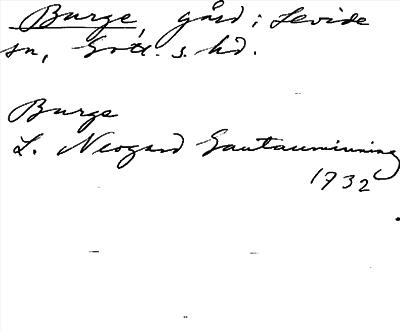 Burge, gård i Levide
sn, Gotl. s. hd.
Burge
L. Neogard Gautauminning
1732